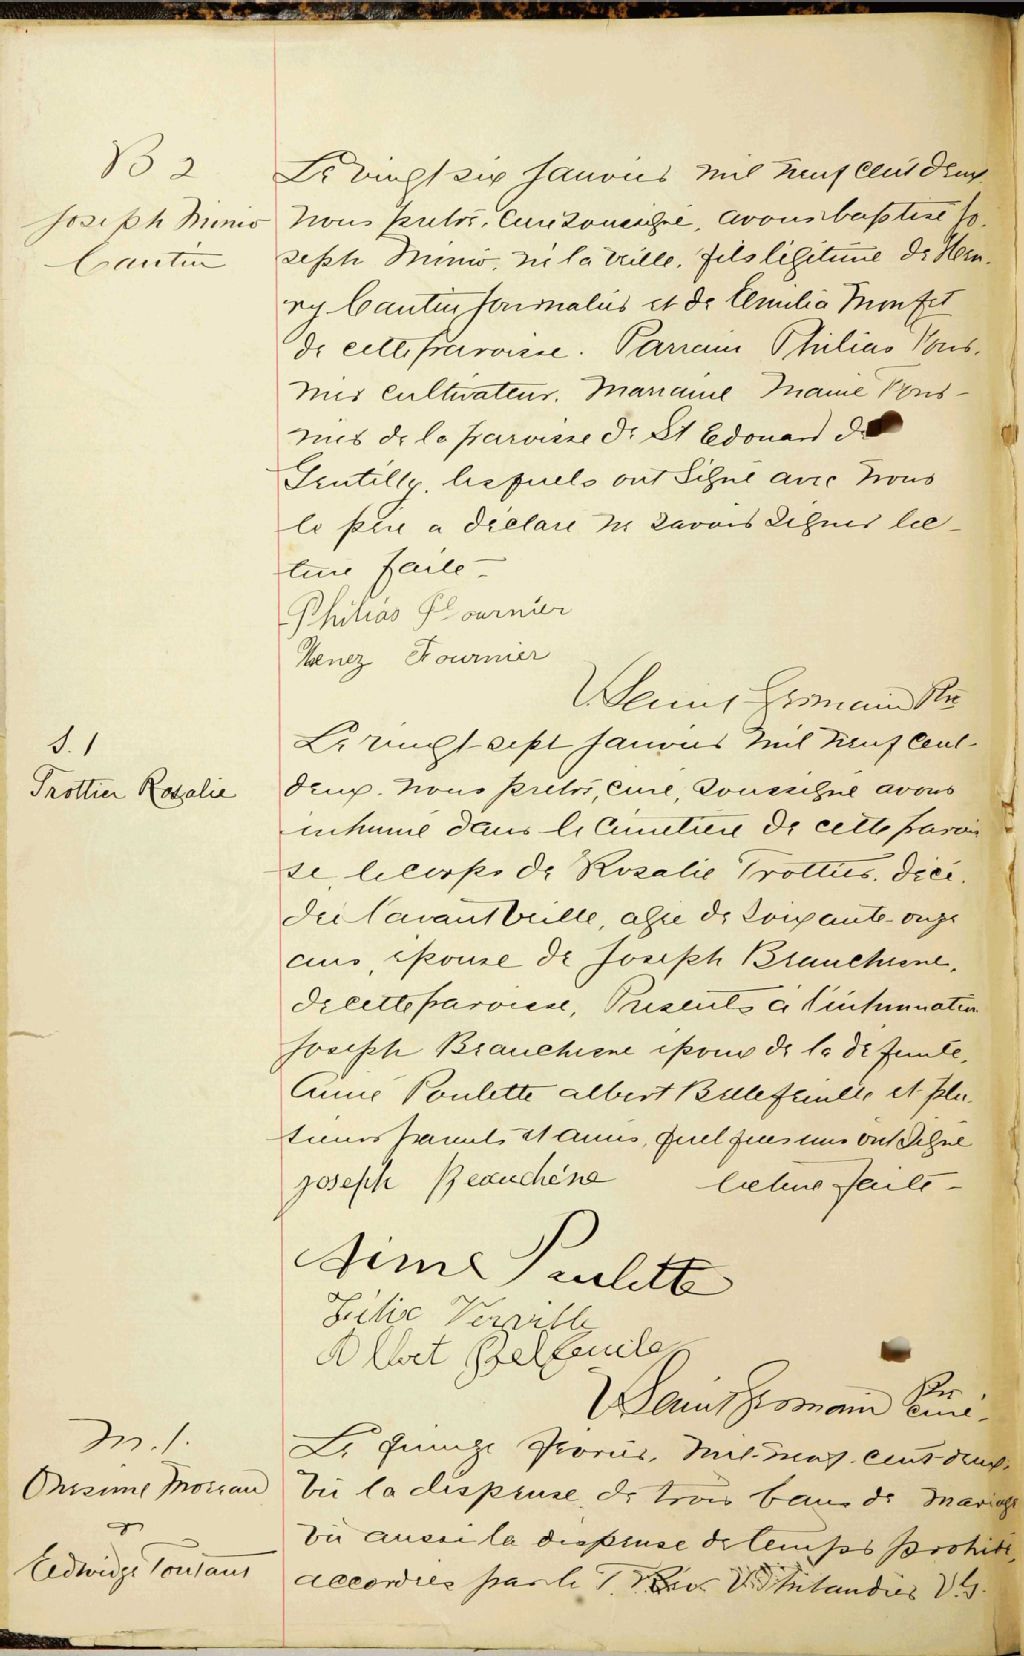 B 2
Joseph Minio
Cantin
Le vingt six Janvier mil neuf cent deux
nous prêtre, curé soussigné, avons baptisé Jo-
seph Minio, né la veille, fils légitime de Hen-
ry Cantin journalier et de Emilia Monfet
de cette paroisse. Parrain Philias Four-
nier cultivateur. Marraine Marie Four-
nier de la paroisse de St Edouard de
Gentilly. lesquels ont signé avec nous
le père a déclaré ne savoir signer lec-
ture faite -
Philias Fournier
Fournier
Saint Germain Ptre
S. 1
Trottier Rosalie
Le vingt-sept Janvier mil neuf cent-
deux. nous prêtre, curé, soussigné avons
inhumé dans le cimetière de cette parois
se, le corps de Rosalie Trottier. décé-
dée l'avant veille, agée de soixante-onze
ans, épouse de Joseph Beauchesne,
de cette paroisse, Présents à l'inhumation
Joseph Beauchesne époux de la défunte,
Aimé Poulette albert Bellefeuille et plu-
sieurs parents et amis, quelques uns ont signé
Joseph Beauchéne lecture faite -
Aime Paulette
Félix Verville
Albert Belfeuile
Saint Germain Ptre
curé.
M. 1.
Onesime Moreau
&
Edwidge Toutant
Le quinze février, mil-neuf-cent-deux,
Vu la dispense de trois bans de mariage
vu aussi la dispense de temps prohibé,
accordées par le T. Rév. V. G.